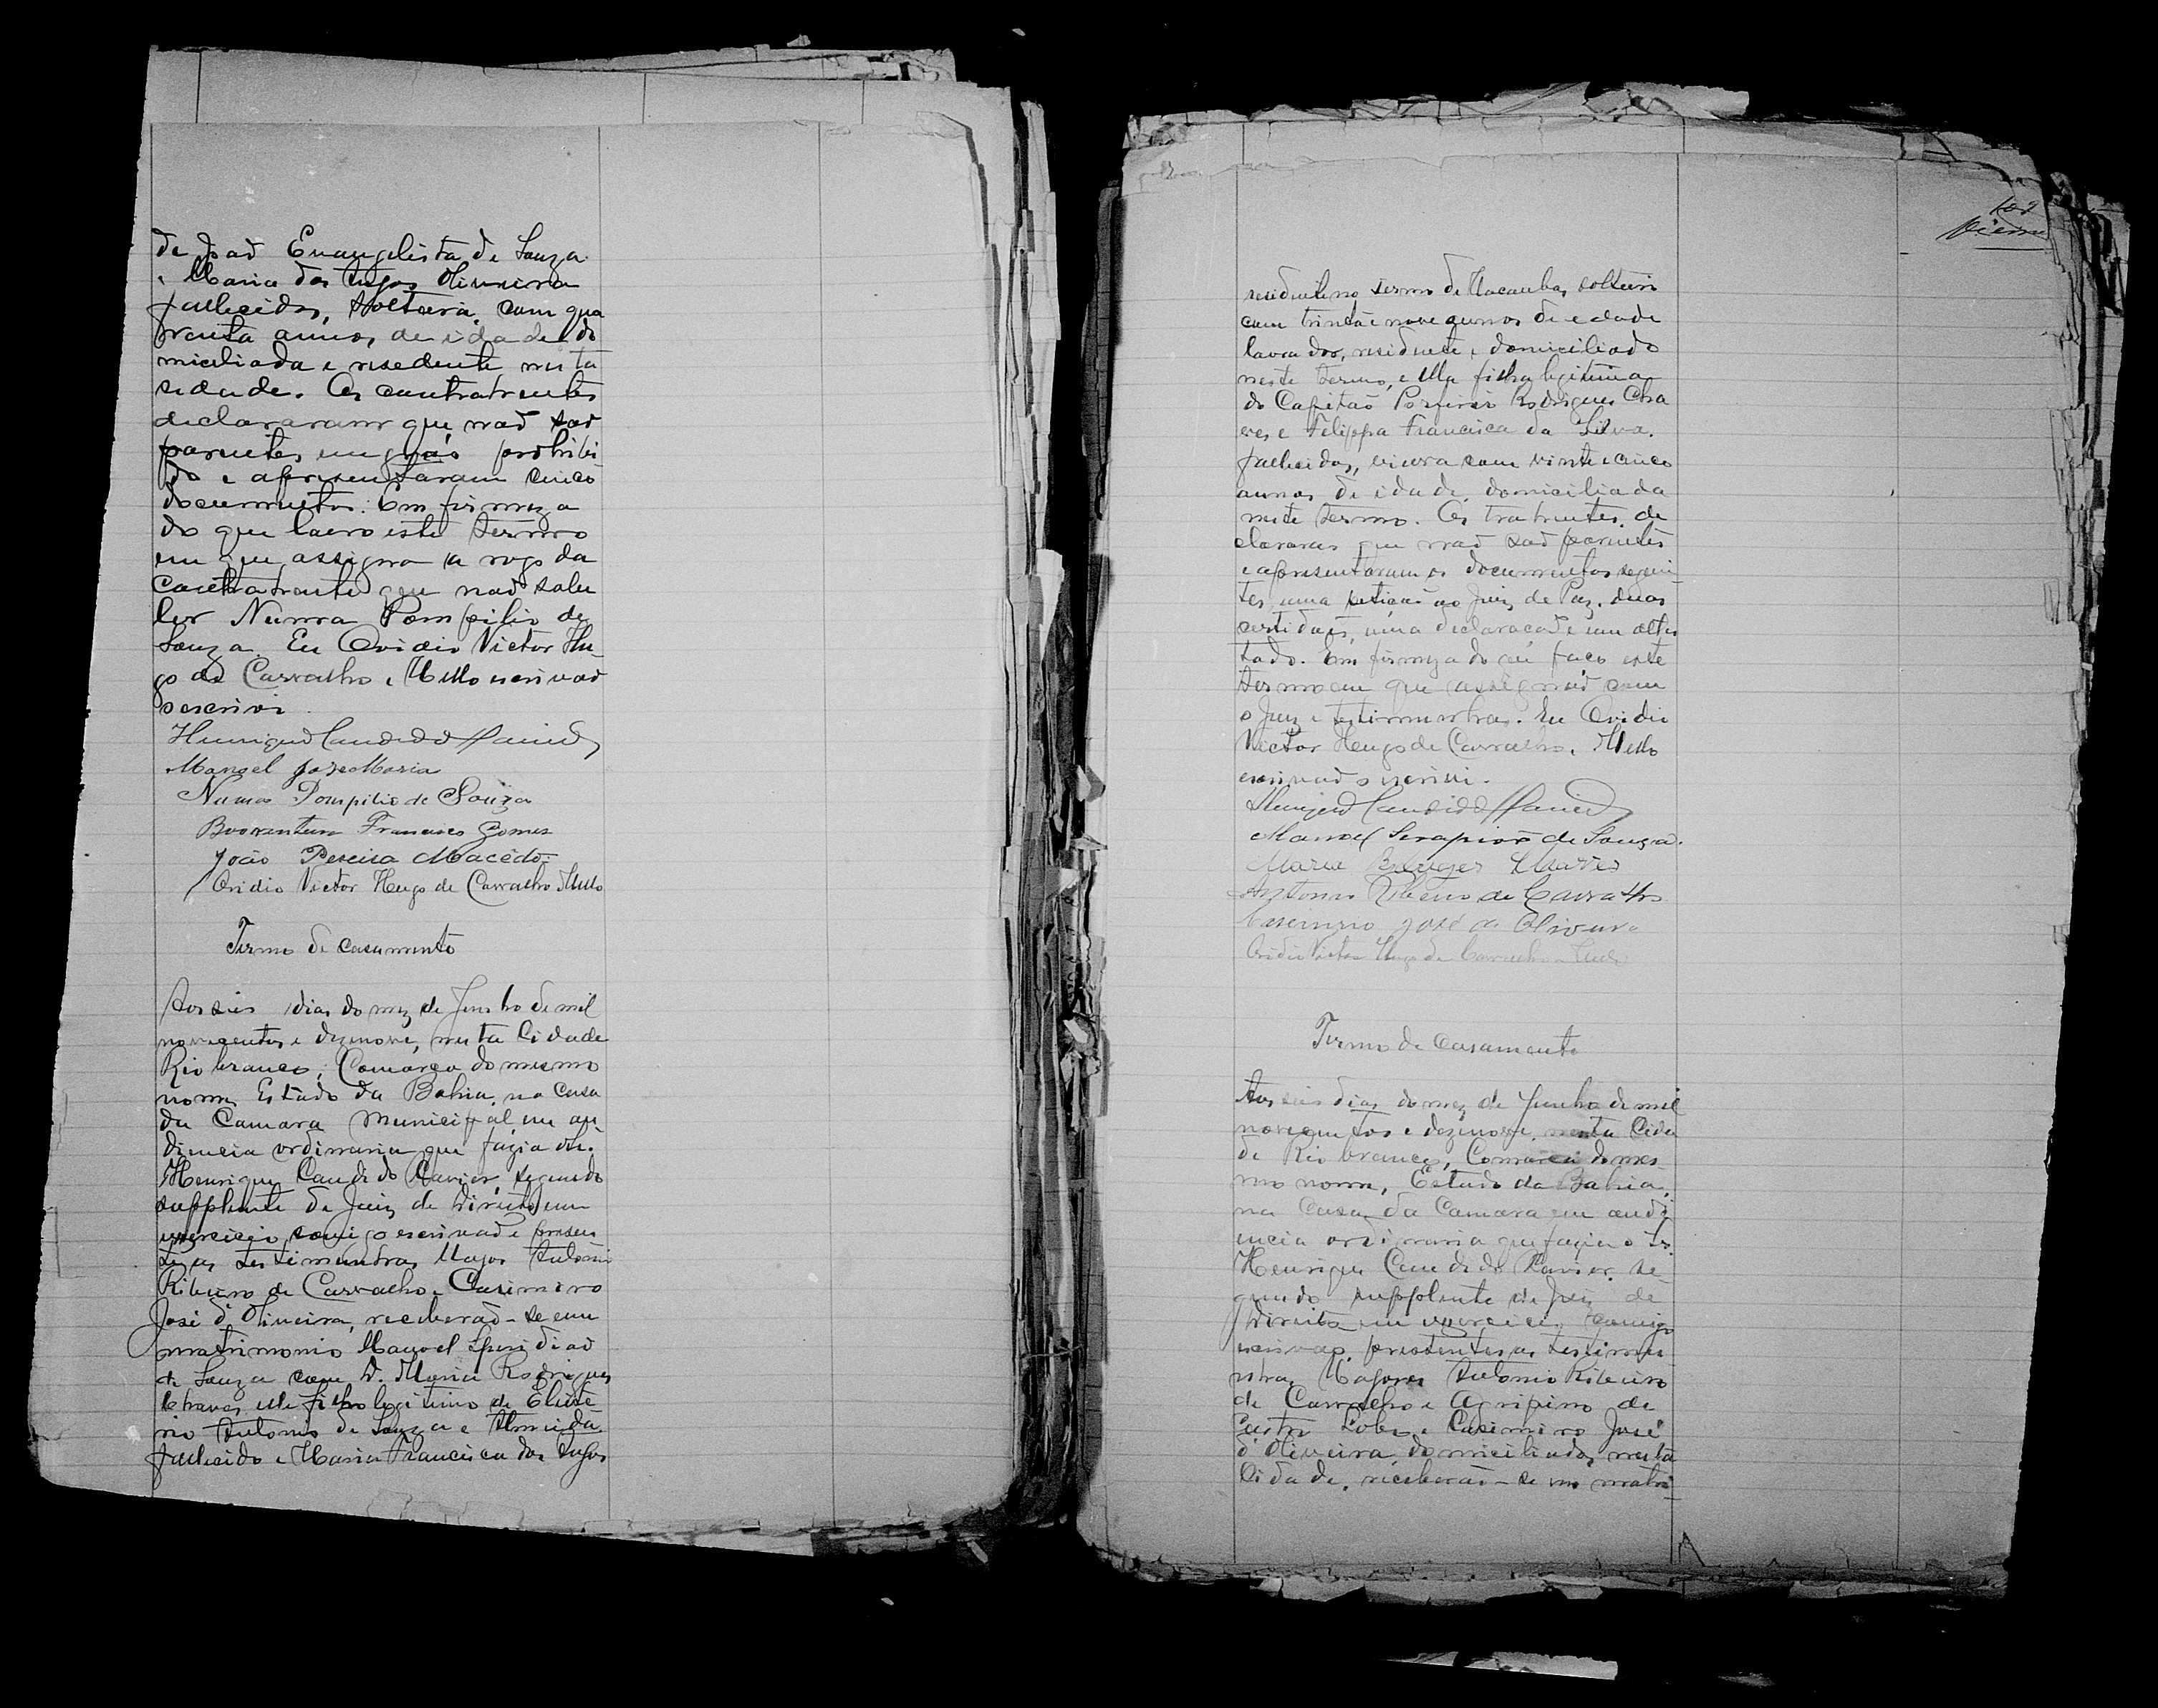 de João Evangelista de Souza
e Maria dos Anjos Oliveira
fallecidos, solteira, com qua
renta annos de idade do
miciliada e resedente nesta
cidade. Os contratrentes
declararam que não são
parentes em gráo prohibi
do e apresentaram cinco
documentos. Em firmeza
do que lavro este termo
em que assigna a rogo da
contratrente que não sabe
ler Numa Pompilio de
Souza. Eu Ovidio Victor Hu-
go de Carvalho e Mello escrivão
o escrivi.
Henrique Candido Xavier
Manoel José Maria
Numa Pompilio de Souza
Boaventura Francisco Gomes
João Pereira Macêdo
Ovidio Victor Hugo de Carvalho Mello
Termo de casamento
Aos seis dias do mez de Junho de mil
novecentos e dezenove, nesta Cidade
Rio branco, Comarca do mesmo
nome Estado da Bahia, na Casa
da Camara Municipal em au
diencia ordinaria que fazia o Sr.
Henrique Candido Xavier, segundo
supplente de Juiz de Direito em
exercicio, comigo escrivão e presen
tes as testemunhas Major Antonio
Ribeiro de Carvalho e Casimiro
José d'Oliveira, receberão-se em
matrimonio Manoel Spiridião
de Souza com D. Maria Rodrigues
Chaves, elle filho legitimo de Eliute-
rio Antonio de Souza e Almeida
fallecido e Maria Francisca dos Anjos
102
residente no termo de Macaubas, solteiro
com trinta e nove annos de edade
lavrador, residente e domiciliado
neste termo, e ella filha legitima
do Capitão Porfirio Rodrigues Cha
ves e Felippa Francisca da Silva.
fallecidos, viuva com vinte e cinco
annos de idade, domiciliada
neste termo. Os tratrentes, de
clararas que não são parentes
e apresentaram os documentos seguin
tes, uma petição ao Juiz de Paz, duas
certidões, uma declaração e um attes
tado. Em firmeza do que faço este
termo em que assignão com
o Juiz e testimunhas. Eu Ovidio
Victor Hugo de Carvalho e Mello
escrivão o escrivi.
Henrique Candido Xavier
Manoel Serapião de Souza.
Maria Chaves
Antonio Ribeiro de Carvalho
Casemiro José de Oliveira
Ovidio Victor Hugo de Carvalho e Mello
Termo de Casamento
Aos seis dias do mez de Junho de mil
novecentos e dezenove, nesta Cida
de Rio branco, Comarca do mes-
mo nome, Estado da Bahia,
na Casa da Camara em audi
encia ordinaria que fazia o Sr.
Henrique Candido Xavier, se-
gundo supplente de Juiz de
Direito em exercicio, comigo
escrivão, presentes as testimu
nhas Majores Antonio Ribeiro
de Carvalho e Agripino de
Castro Lobo e Casimiro José
d'Oliveira, domiciliados nesta
Cidade, receberão-se em matri-